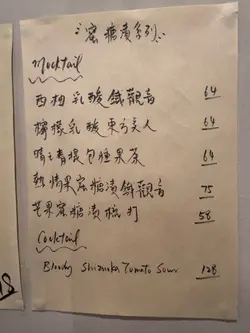 蜜糖漬系列
Mocktail
西柚乳酸鐵觀音 64
檸檬乳酸東方美人 64
青提包種果茶 64
熱情果蜜糖漬鐵觀音 75
芒果蜜糖漬梳打 58
Cocktail
Bloody Shizuoka Tomato Sour 128